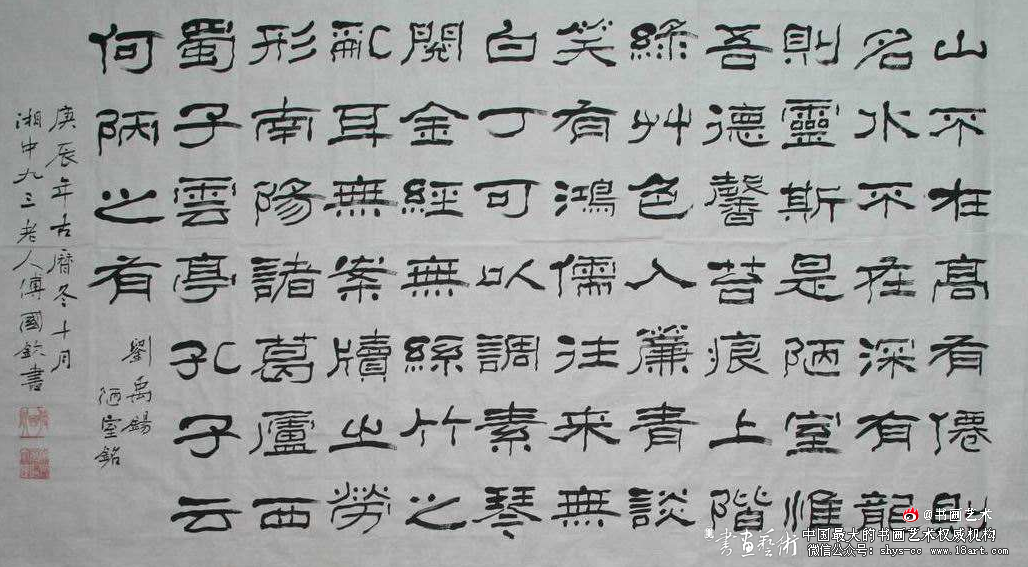 山不在高有僊則
名水不在深有龍
則靈斯是陋室惟
吾德馨苔痕上階
綠艸色入簾青談
笑有鴻儒往來無
白丁可以調素琴
閱金經無絲竹之
亂耳無案牘之勞
形南陽諸葛廬西
蜀子雲亭孔子云
何陋之有
劉禹錫
陋室銘
庚辰年古曆冬十月
湘中九三老人傅國欽書
@书画艺术
書画藝術
中国最大的书画艺术权威机构
微信公众号：shys-cc www.18art.com